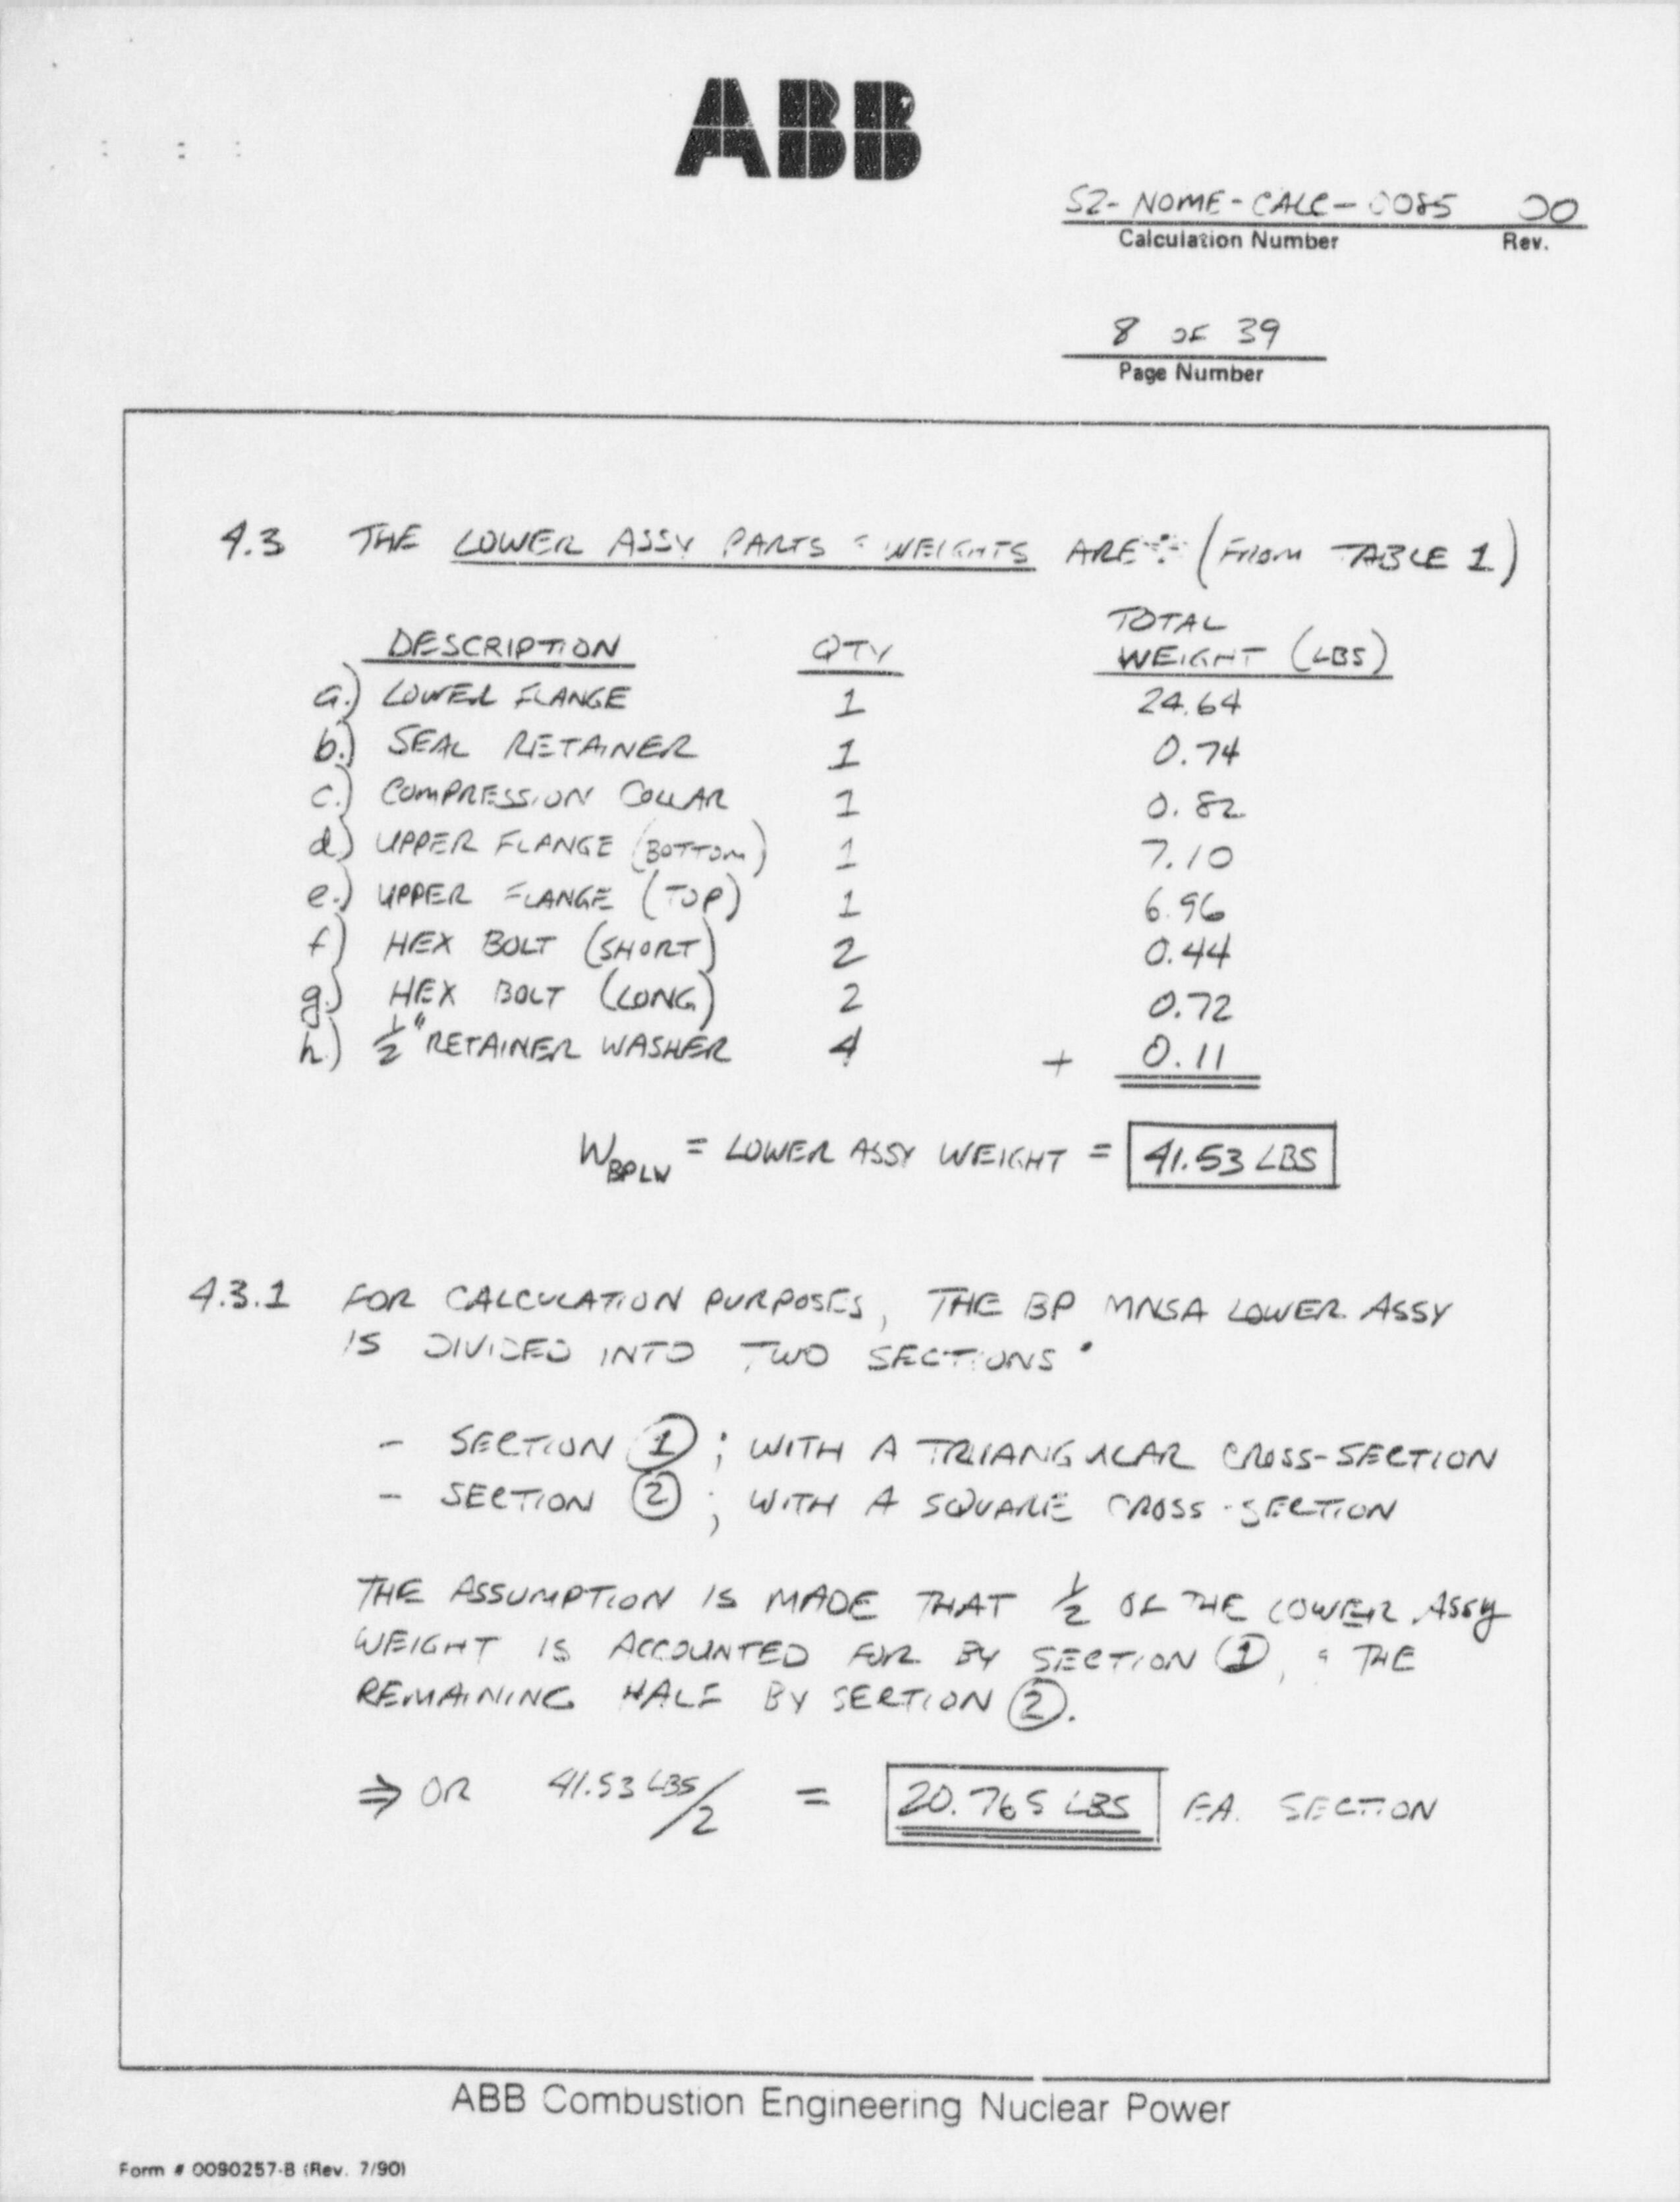 ABB
S2-NOME-CALC-0085 00
Calculation Number Rev.
8 OF 39
Page Number
4.3 THE LOWER ASSY PARTS & WEIGHTS ARE: (FROM TABLE 1)
DESCRIPTION QTY TOTAL WEIGHT (LBS)
a.) LOWER FLANGE 1 24.64
b.) SEAL RETAINER 1 0.74
c.) COMPRESSION COLLAR 1 0.82
d.) UPPER FLANGE (BOTTOM) 1 7.10
e.) UPPER FLANGE (TOP) 1 6.96
f.) HEX BOLT (SHORT) 2 0.44
g.) HEX BOLT (LONG) 2 0.72
h.) 1/2" RETAINER WASHER 4 + 0.11
W BPLW = LOWER ASSY WEIGHT = 41.53 LBS
4.3.1 FOR CALCULATION PURPOSES, THE BP MNSA LOWER ASSY
IS DIVIDED INTO TWO SECTIONS:
- SECTION ①; WITH A TRIANGULAR CROSS-SECTION
- SECTION ②; WITH A SQUARE CROSS-SECTION
THE ASSUMPTION IS MADE THAT 1/2 OF THE LOWER ASSY
WEIGHT IS ACCOUNTED FOR BY SECTION ①, & THE
REMAINING HALF BY SECTION ②.
⇒ OR 41.53 LBS/2 = 20.765 LBS EA. SECTION
ABB Combustion Engineering Nuclear Power
Form # 0090257-B (Rev. 7/90)